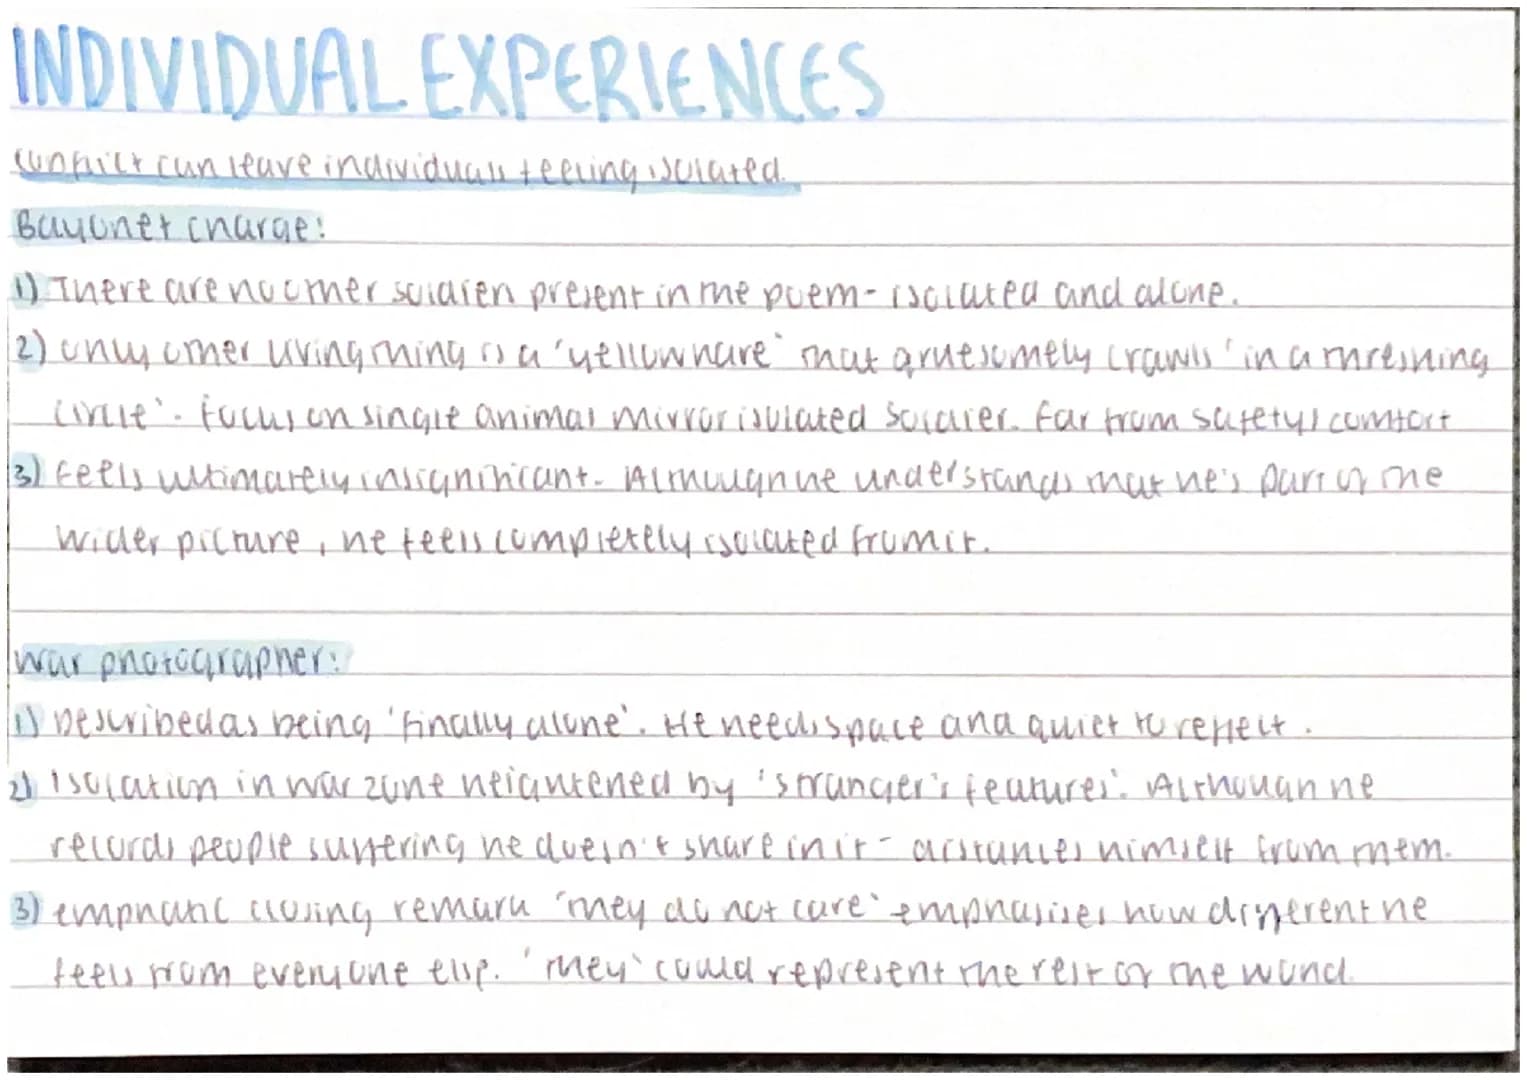 INDIVIDUAL EXPERIENCES
Conflict can leave individuals feeling isolated.
Bayonet charge:
1) There are no other soldiers present in the poem - isolated and alone.
2) only other living thing is a 'yellow hare' that gruesomely crawls 'in a threshing
circle'. Focus on single animal mirror isolated soldier. Far from safety/comfort
3) Feels ultimately insignificant. Although he understands that he's part of the
wider picture, he feels completely isolated from it.
War photographer:
1) Described as being 'finally alone'. He needs space and quiet to reflect.
2) Isolation in war zone heightened by 'stranger's features'. Although he
records people suffering he doesn't share in it - distances himself from them.
3) emphatic closing remark 'they do not care' emphasises how different he
feels from everyone else. 'they' could represent the rest of the world.